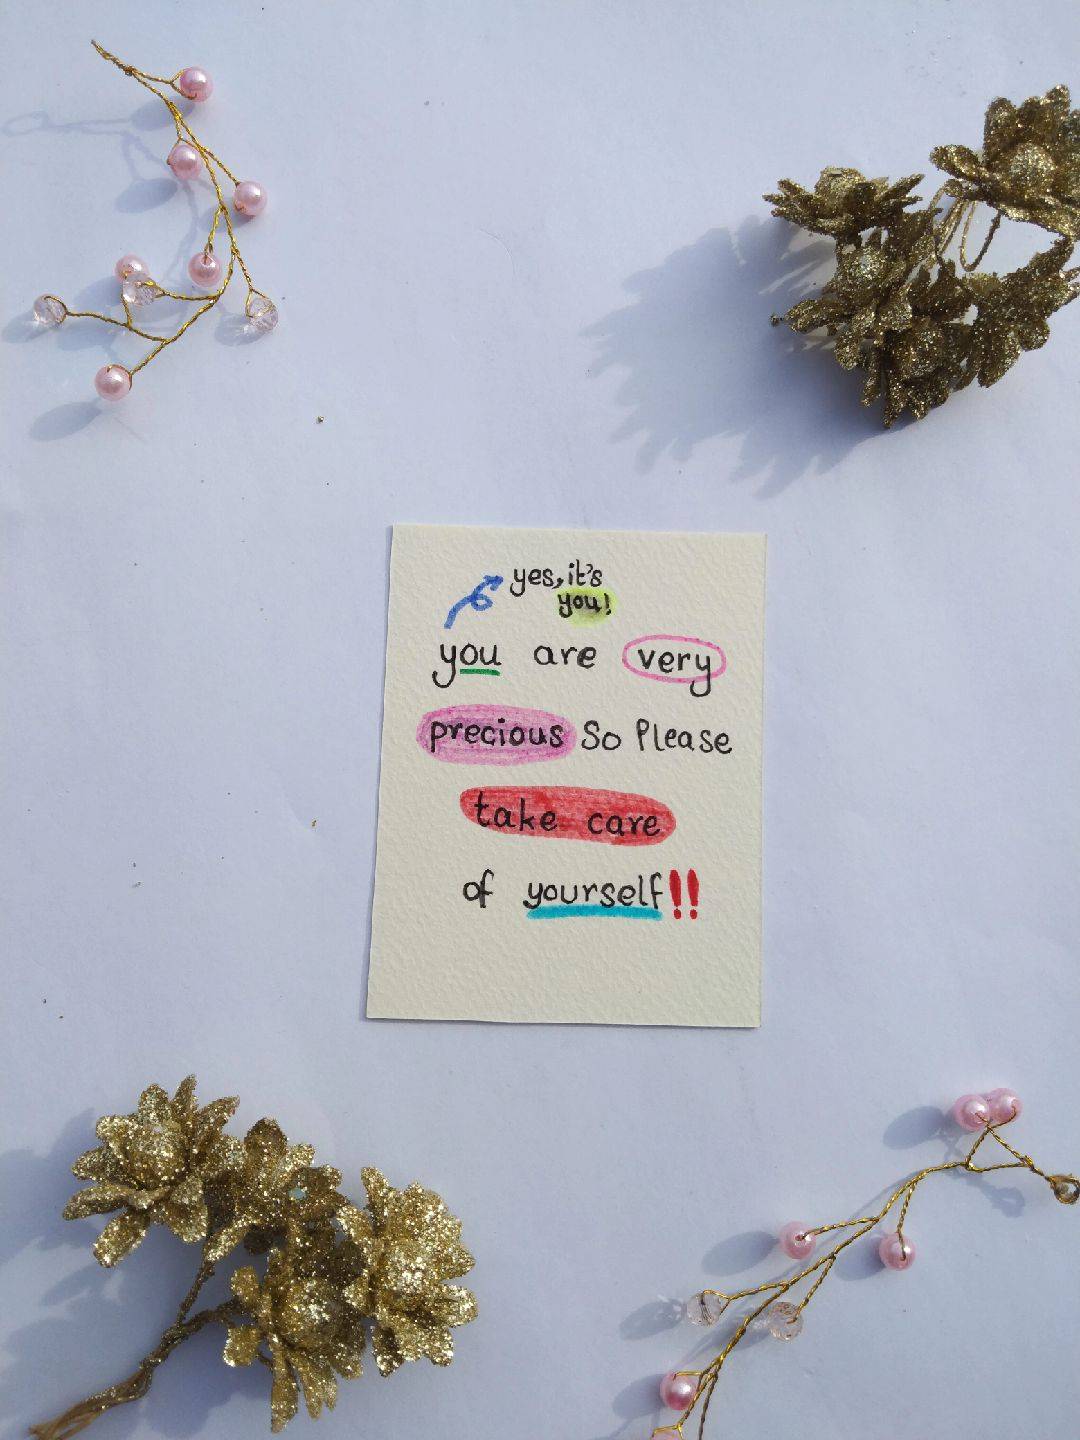 yes, it's
you!
you are very
precious So Please
take care
of yourself!!